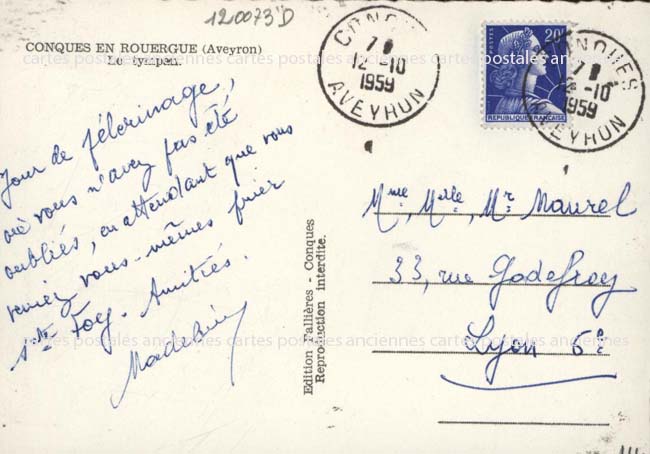 120073D
CONQUES EN ROUERGUE (Aveyron)
Le tympan.
Jour de pélerinage,
où vous n'avez pas été
oubliés, en attendant que vous
veniez vous-mêmes prier
Ste Foy. Amitiés.
CONQUES
7 12-10
1959
AVEYRON
20F
POSTES
REPUBLIQUE FRANÇAISE
CONQUES
7 12-10
1959
AVEYRON
Mme, Melle, Mr Maurel
33, rue Godefroy
Lyon 6e
Edition Fallières - Conques
Reproduction interdite.
cartes postales anciennes cartes postales anciennes cartes postales anciennes
cartes postales anciennes cartes postales anciennes cartes postales anciennes